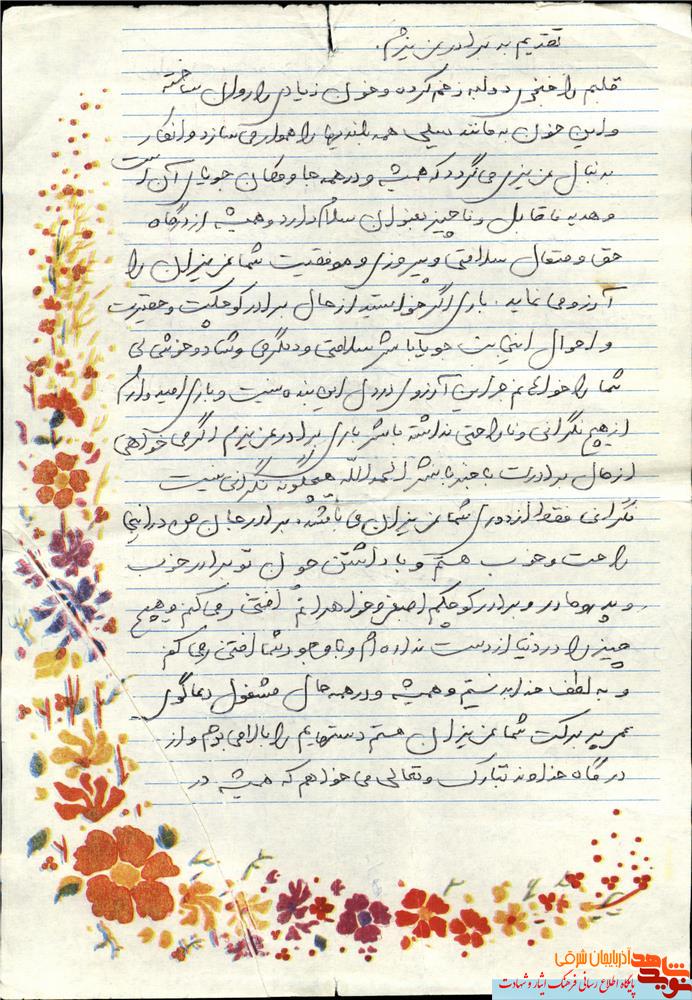 تقدیم به برادر عزیزم.
قلبم را خنجری دولبه زخم کرده و خون زیادی را روان ساخته
و این خون به مانند سیلی همه بلندیها را هموار می سازد و انگار
به دنبال عزیزی می گردد که همیشه و در همه جا و مکان جویای آن است
و هدیه ناقابل و ناچیز بعنوان سلام دارد و همیشه از درگاه
حق و متعال سلامتی و پیروزی و موفقیت شما عزیزان را
آرزو می نماید. باری اگر خواسته باشید از حال برادر کوچکت و حقیرت
و احوال اینجانب جویا باشید سلامتی و دلگرمی و شاد و خوشحالی
شما را خواهانم جز این آرزوی در دل این بنده نیست و باری امیدوارم
از هیچ نگرانی و ناراحتی نداشته باشید باری برادر عزیزم اگر می خواهی
از حال برادرت با خبر باشی الحمدالله هیچگونه نگرانی نیست
نگرانی فقط از دوری شما عزیزان می باشد، برادر جان من در اینجا
راحت و خوب هستم و با داشتن چون تو برادر خوب
و پدر و مادر و برادر کوچکم اصغر و خواهرانم افتخار می کنم و هیچ
چیز را در دنیا از دست نداده ام و با وجود شما افتخار می کنم
و به لطف خداوند نیستم و همیشه و در همه حال مشغول دعاگوی
عمر پر برکت شما عزیزان هستم دستهایم را بالا می برم و از
درگاه خداوند تبارک و تعالی می خواهم که همیشه در
نوید شاهد آذربایجان شرقی
پایگاه اطلاع رسانی فرهنگ ایثار و شهادت